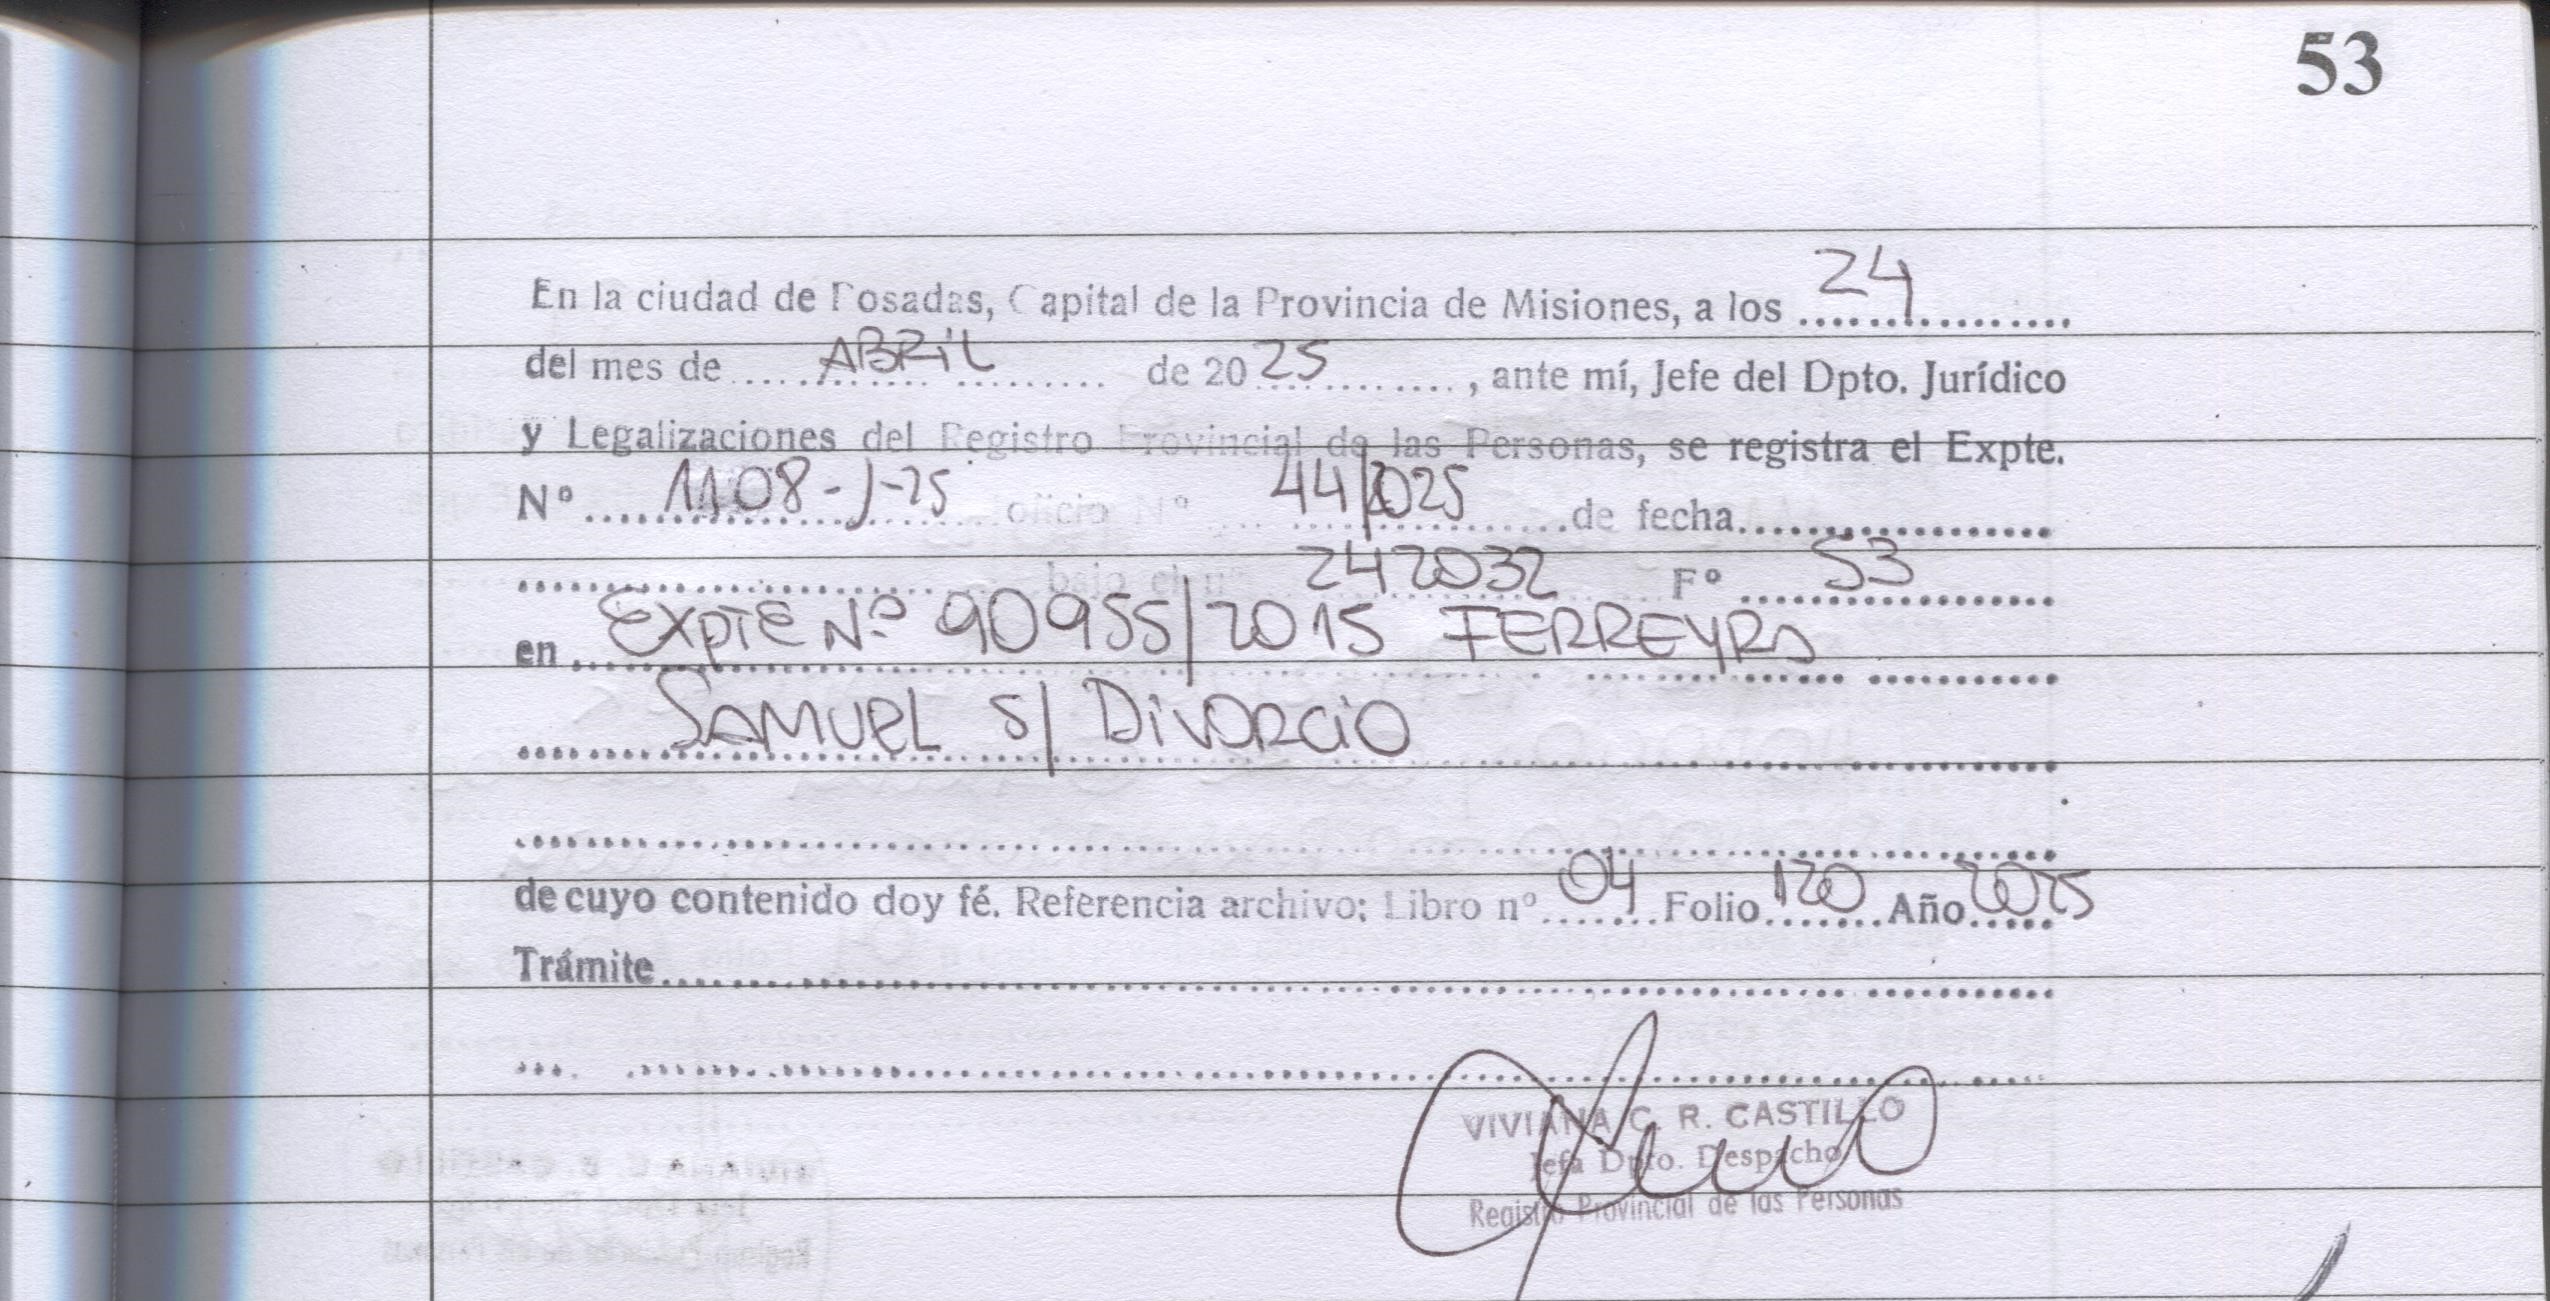 53
En la ciudad de Posadas, Capital de la Provincia de Misiones, a los 24
del mes de ABRIL de 2025, ante mí, Jefe del Dpto. Jurídico
y Legalizaciones del Registro Provincial de las Personas, se registra el Expte.
Nº 1108-J-25 oficio Nº 44/2025 de fecha
bajo el nº 242032 Fº 53
en EXPTE Nº 90955/2015 FERREYRA
SAMUEL S/ DIVORCIO
de cuyo contenido doy fé. Referencia archivo: Libro nº 04 Folio 120 Año 2025
Trámite
VIVIANA C. R. CASTILLO
Jefa Dpto. Despacho
Registro Provincial de las Personas